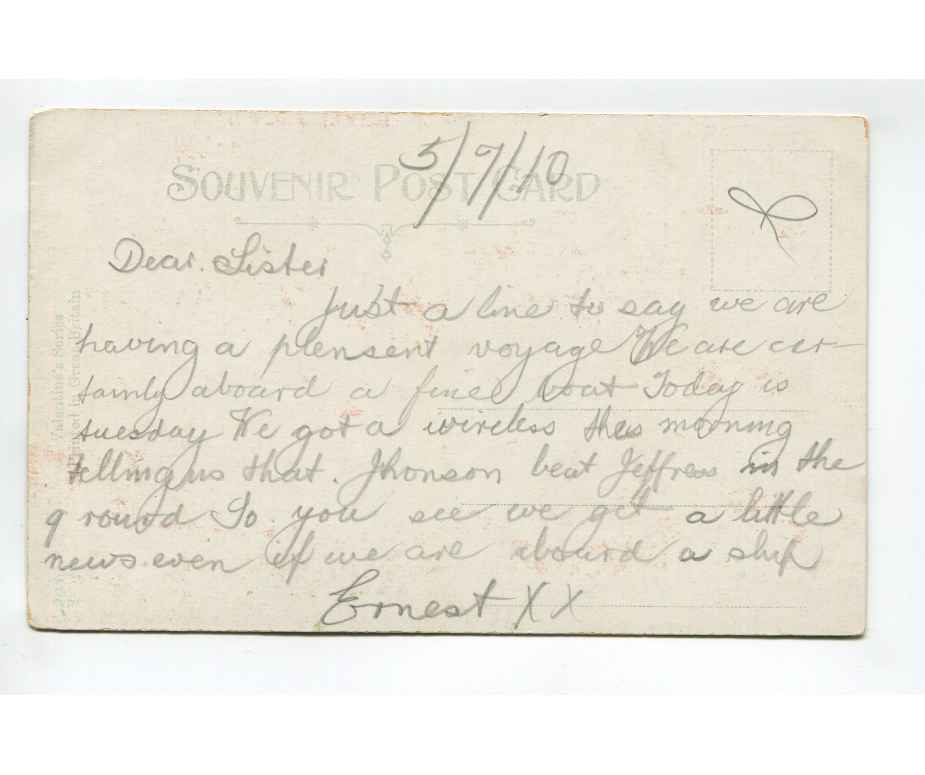 SOUVENIR POST CARD
5/7/10
Dear. Sister
Just a line to say we are
having a plensent voyage We are cer-
tainly aboard a fine boat Today is
tuesday We got a wireless this morning
telling us that. Jhonson beat Jeffress in the
9 round So you see we get a little
news even if we are aboard a ship
Ernest XX
Valentine's Series
Printed in Great Britain